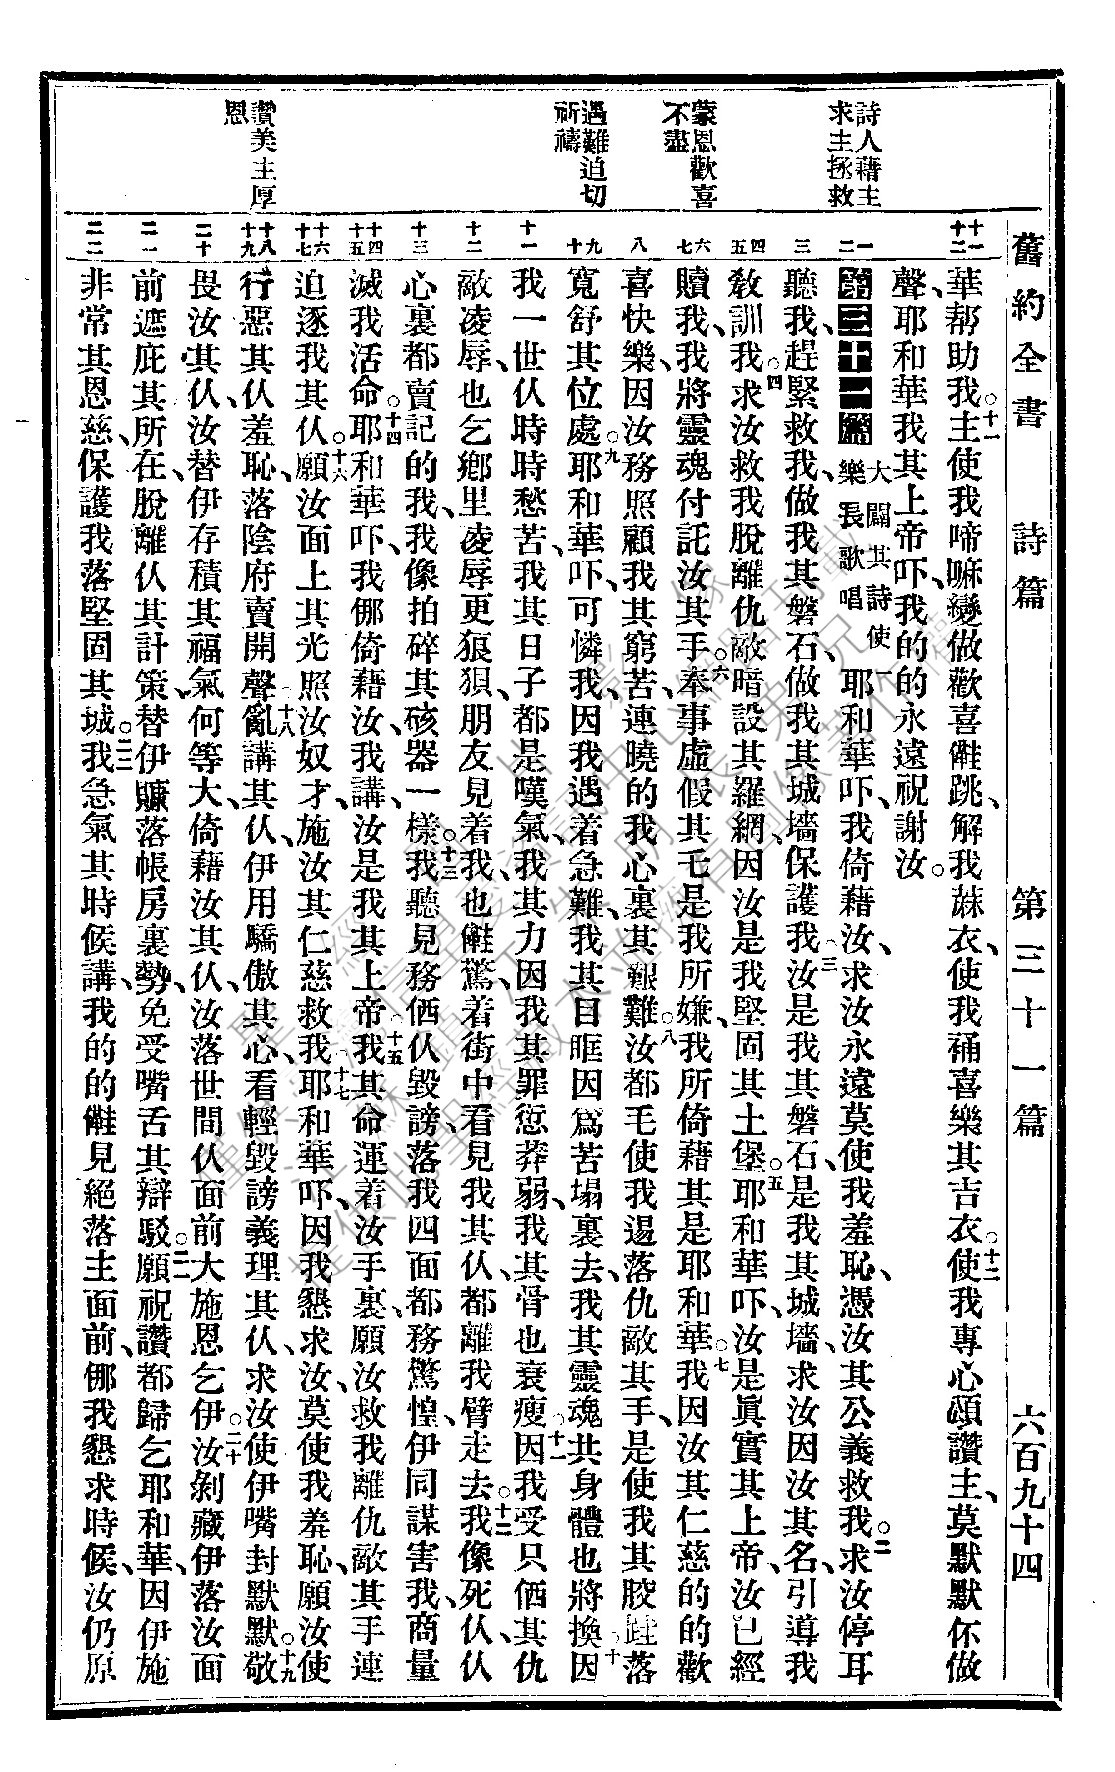 舊約全書 詩篇 第三十一篇 六百九十四
詩人藉主
求主拯救
蒙恩歡喜
不盡
遇難迫切
祈禱
讚美主厚
恩
華帮助我。十一主使我啼嘛變做歡喜、跳、解我蔴衣、使我穿喜樂其吉衣。十二使我專心頌讚主、莫默默伓做
聲、耶和華我其上帝吓、我的的永遠祝謝汝。
第三十一篇 大闢其詩使樂長歌唱 一耶和華吓、我倚藉汝、求汝永遠莫使我羞恥、憑汝其公義救我。二求汝停耳
聽我、趕緊救我、做我其磐石、做我其城墻、保護我。三汝是我其磐石、是我其城墻、求汝因汝其名、引導我
敎訓我。四求汝救我脫離仇敵暗設其羅網、因汝是我堅固其土堡。五耶和華吓、汝是眞實其上帝、汝已經
贖我、我將靈魂付託汝其手。六奉事虛假其乇是我所嫌、我所倚藉其是耶和華。七我因汝其仁慈的的歡
喜快樂、因汝務照顧我其窮苦、連曉的我心裏其艱難。八汝都毛使我逷落仇敵其手、是使我其骹跬落
寬舒其位處。九耶和華吓、可憐我、因我遇着急難、我其目眶因爲苦塌裏去、我其靈魂共身體也將換。十因
我一世仈時時愁苦、我其日子都是嘆氣、我其力因我其罪愆莽弱、我其骨也衰瘦。十一因我受只俩其仇
敵凌辱、也乞鄉里凌辱更狼狽、朋友見着我、也驚、着街中看見我其仈、都離我臂走去。十二我像死仈、仈
心裏都賣記的我、我像拍碎其砐器一樣。十三我聽見務俩仈毀謗、落我四面都務驚惶、伊同謀害我、商量
滅我活命。十四耶和華吓、我倻倚藉汝、我講、汝是我其上帝。十五我其命運着汝手裏、願汝救我離仇敵其手連
迫逐我其仈。十六願汝面上其光照汝奴才、施汝其仁慈救我。十七耶和華吓、因我懇求汝、莫使我羞恥、願汝使
行惡其仈羞恥、落陰府賣開聲。十八亂講其仈、伊用驕傲其心看輕毀謗義理其仈、求汝使伊嘴封默默。十九敬
畏汝其仈、汝替伊存積其福氣何等大、倚藉汝其仈、汝落世間仈面前大施恩乞伊。二十汝剁藏伊落汝面
前遮庇其所在、脫離仈其計策、替伊贜落帳房裏勢、免受嘴舌其辯駁。二一願祝讚都歸乞耶和華、因伊施
非常其恩慈、保護我落堅固其城。二二我急氣其時候講、我的的見絕落主面前、倻我懇求時候、汝仍原